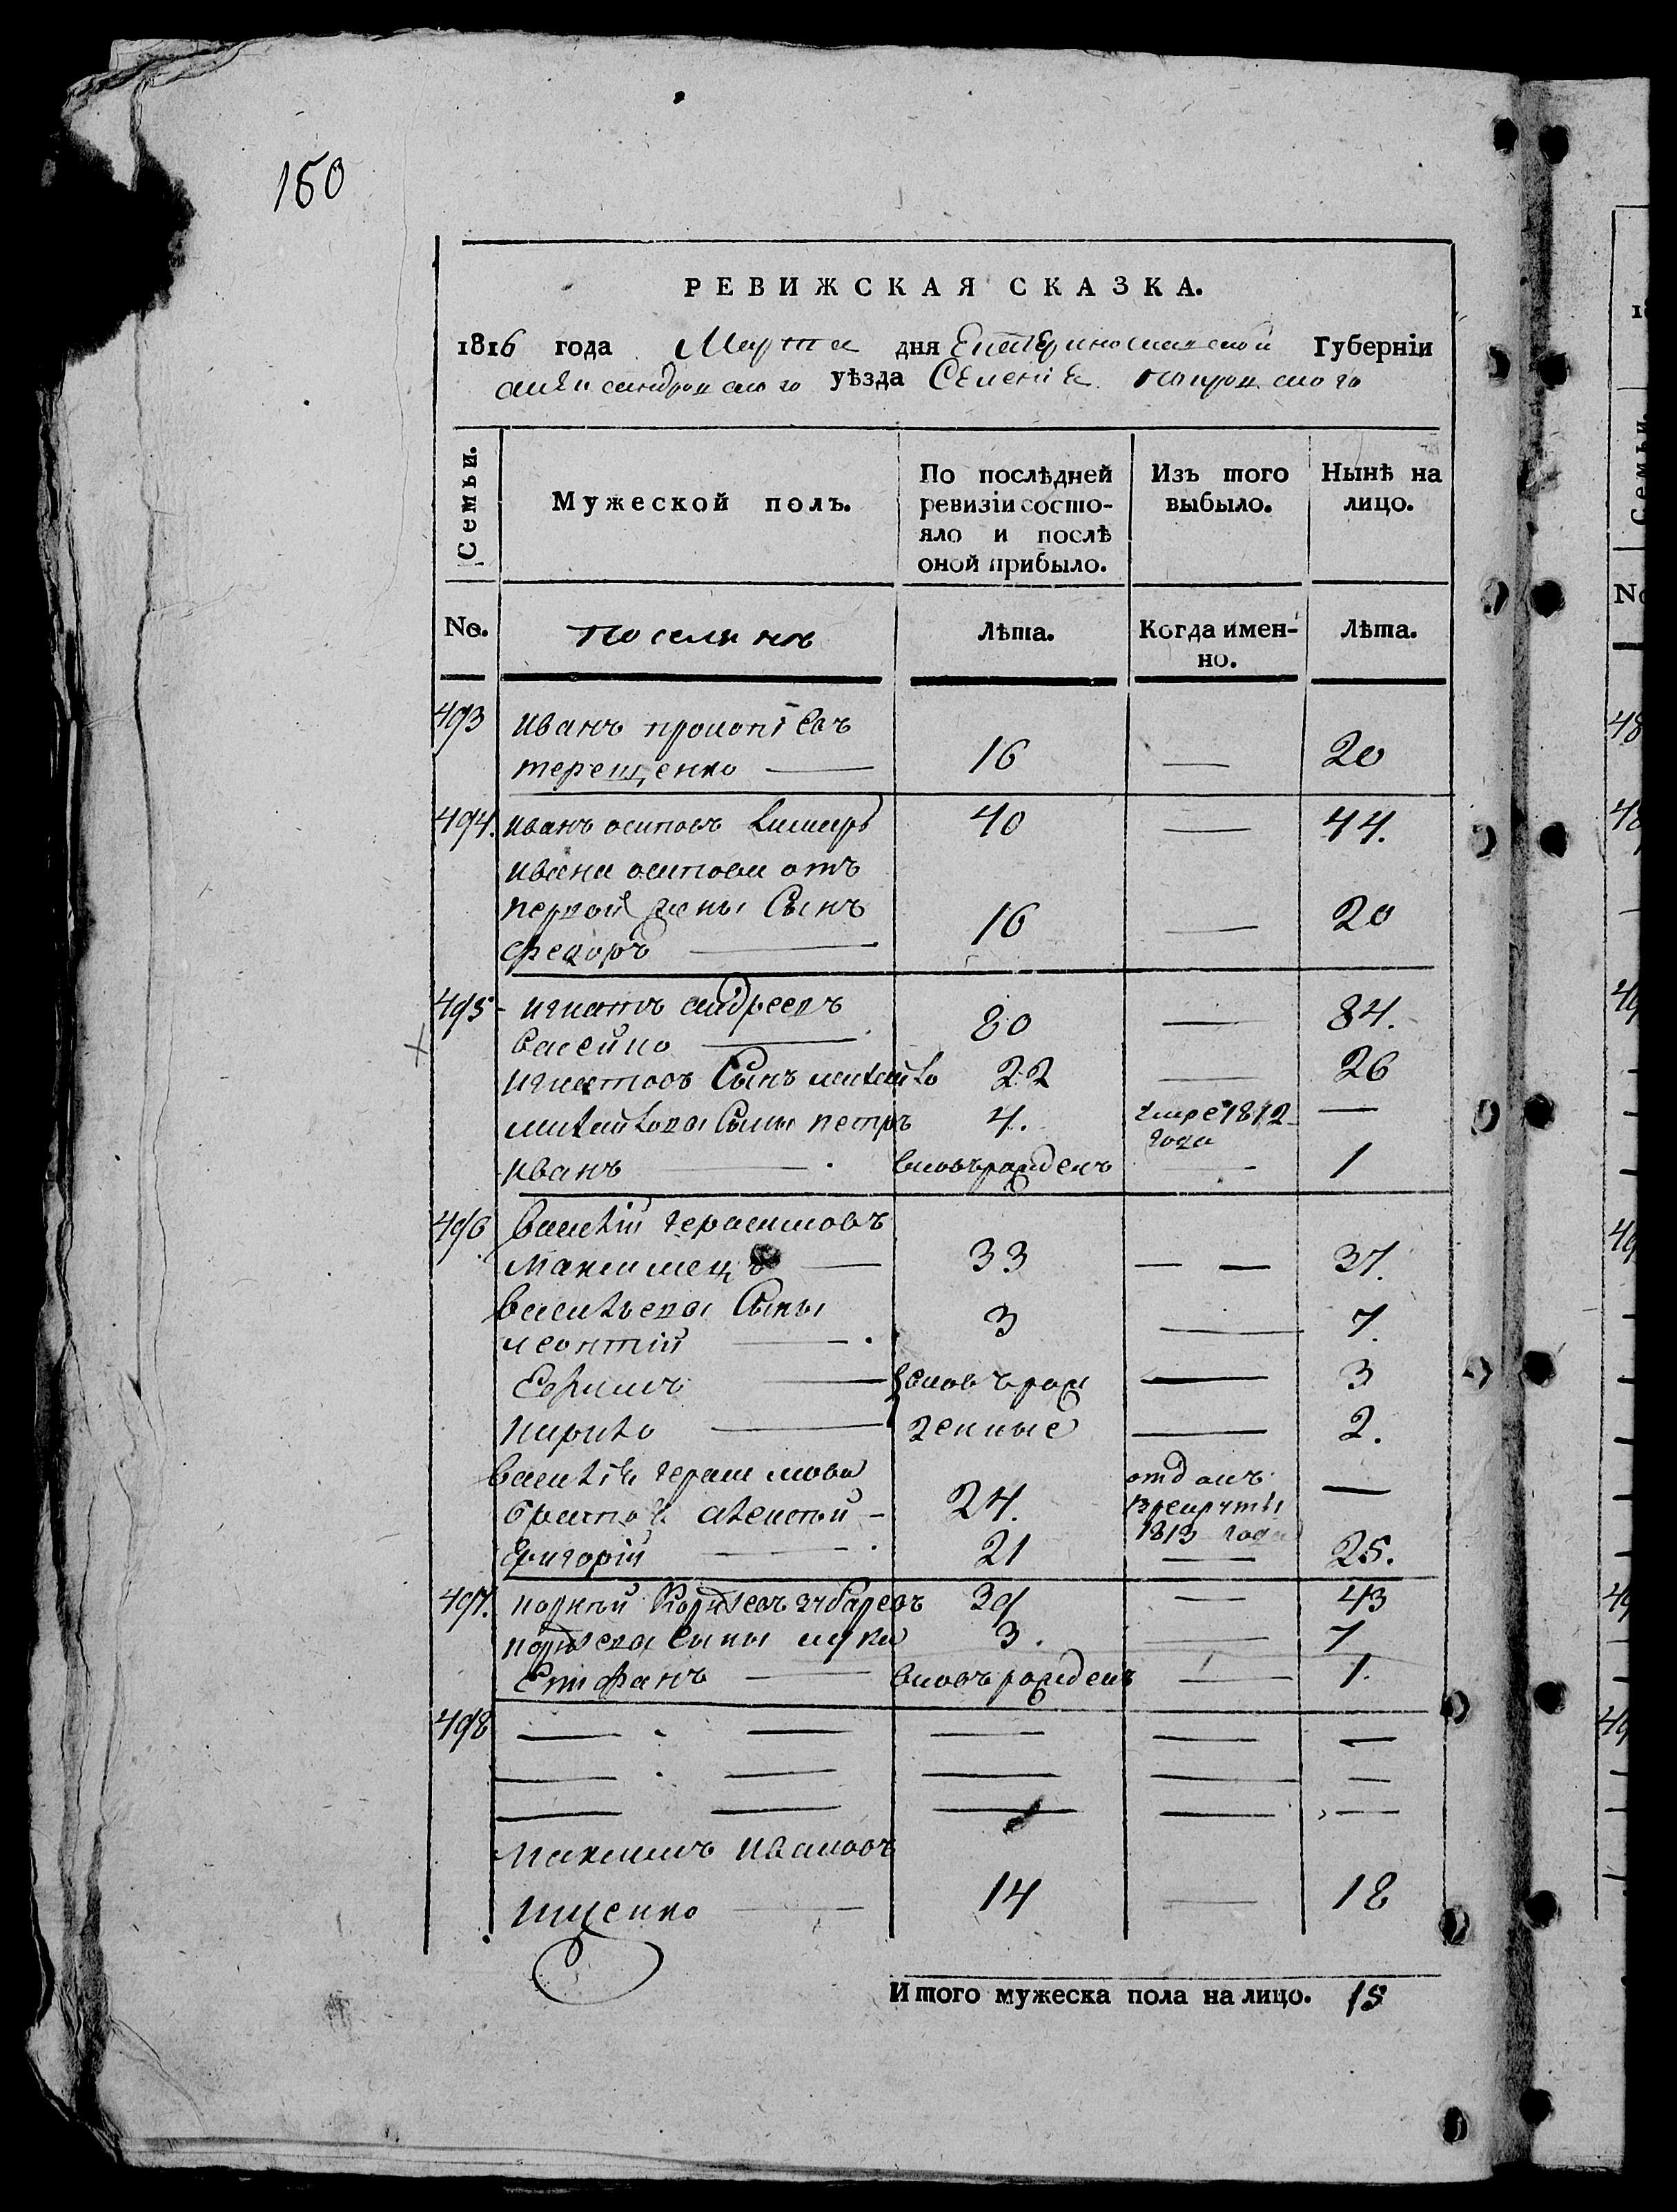 150
РЕВИЖСКАЯ СКАЗКА.
1816 года Марта дня Екатеринославской Губерніи
александровского уѣзда Селенія покровского
Семьи.
Мужеской полъ.
По послѣдней ревизіи состояло и послѣ оной прибыло.
Изъ того выбыло.
Нынѣ на лицо.
No.
поселянъ
Лѣта.
Когда именно.
Лѣта.
493 иванъ прокопіевъ
терещенко — 16 — 20
494. иванъ осиповъ 40 — 44.
ивана осипова отъ
первой жены Сынъ
федоръ — 16 — 20
495 игнатъ андреевъ
— 80 — 84.
игнатовъ Сынъ михайло 22 — 26
михайловы Сыны петръ 4. умре 1812 года —
иванъ — вновьрожденъ — 1
496 василій герасимовъ
Максимецъ — 33 — — 37.
васильевы Сыны
леонтій — 3 — 7.
Ефимъ — вновь рож — 3
кирило — денные — 2.
василія герасимова
братья алексей — 24. отданъ врекруты 1813 года —
григорій — 21 — 25.
497. корней 39 — 43
корнеевы Сыны лука 3. — 7
Стифанъ — вновърожденъ — 1.
498 — — — — —
— — — — —
— — — — —
максимъ ивановъ
ищенко — 14 — 18
Итого мужеска пола на лицо. 15